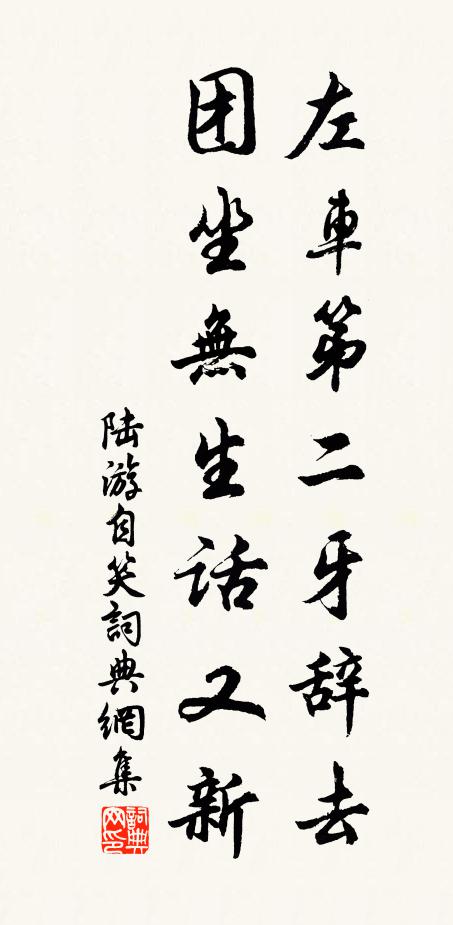 左車第二牙辞去
团坐無生話又新
陆游自笑詞典網集
詞典网印